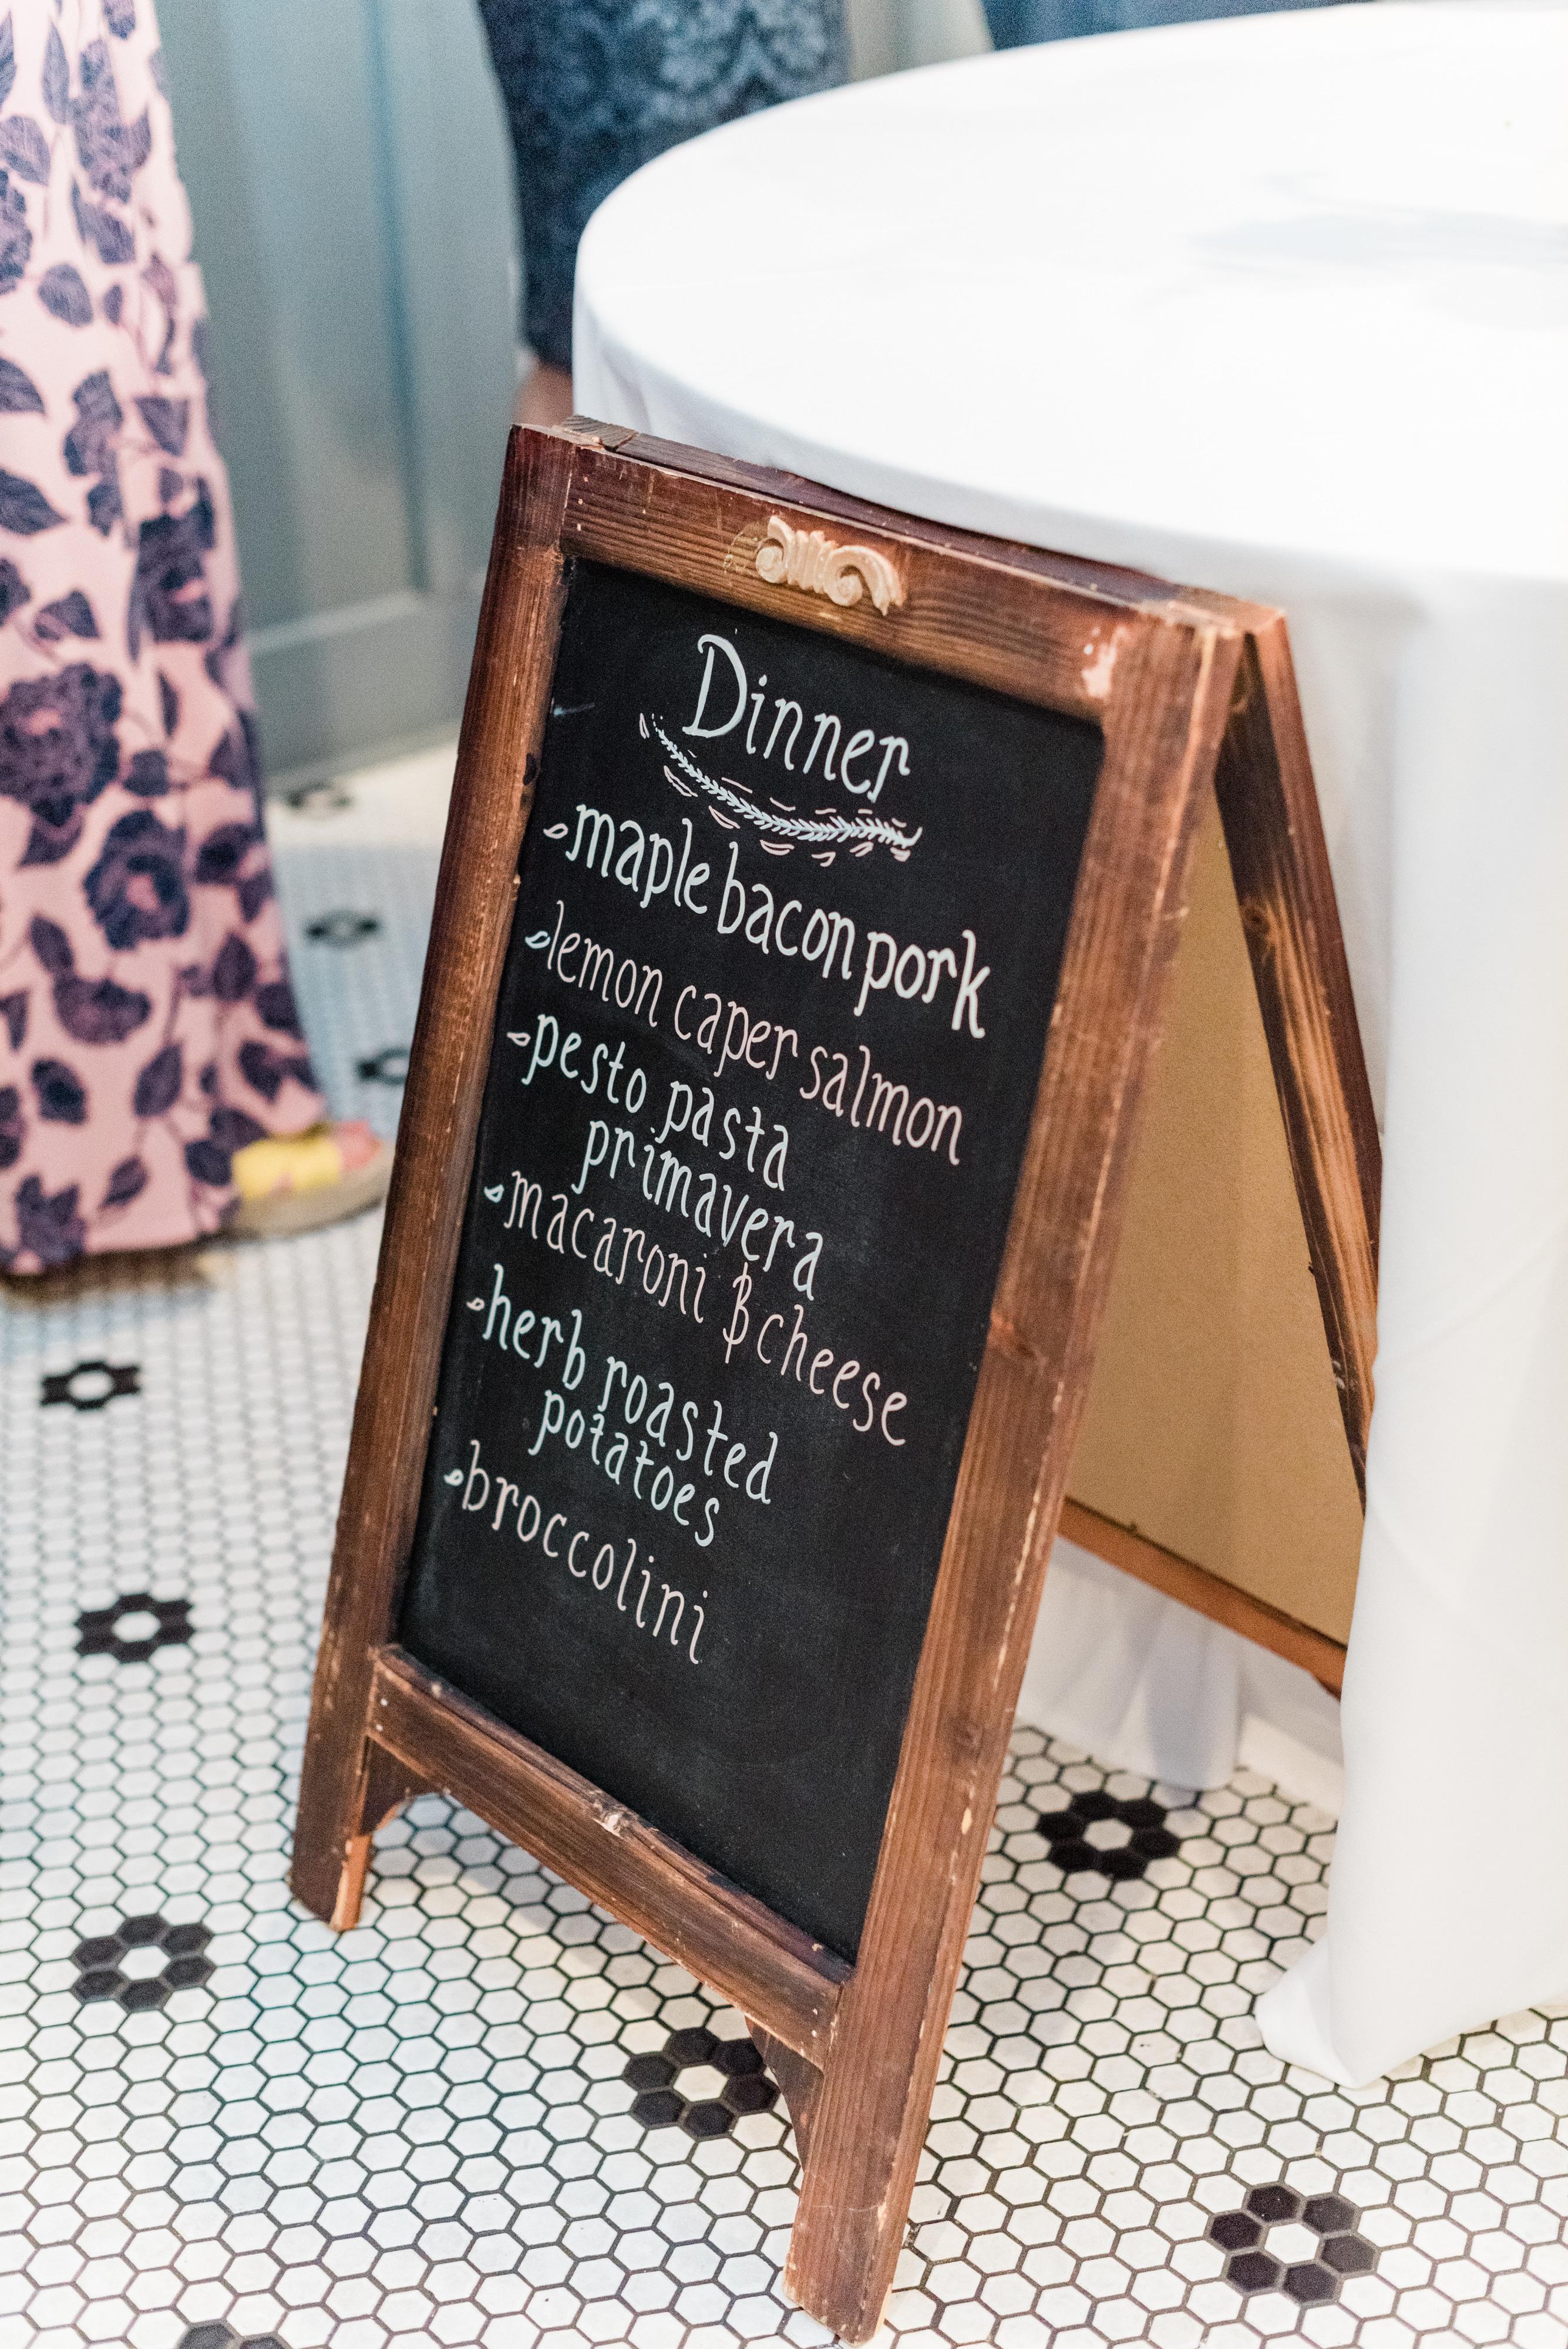 Dinner
maple bacon pork
lemon caper salmon
pesto pasta
primavera
macaroni & cheese
herb roasted
potatoes
broccolini